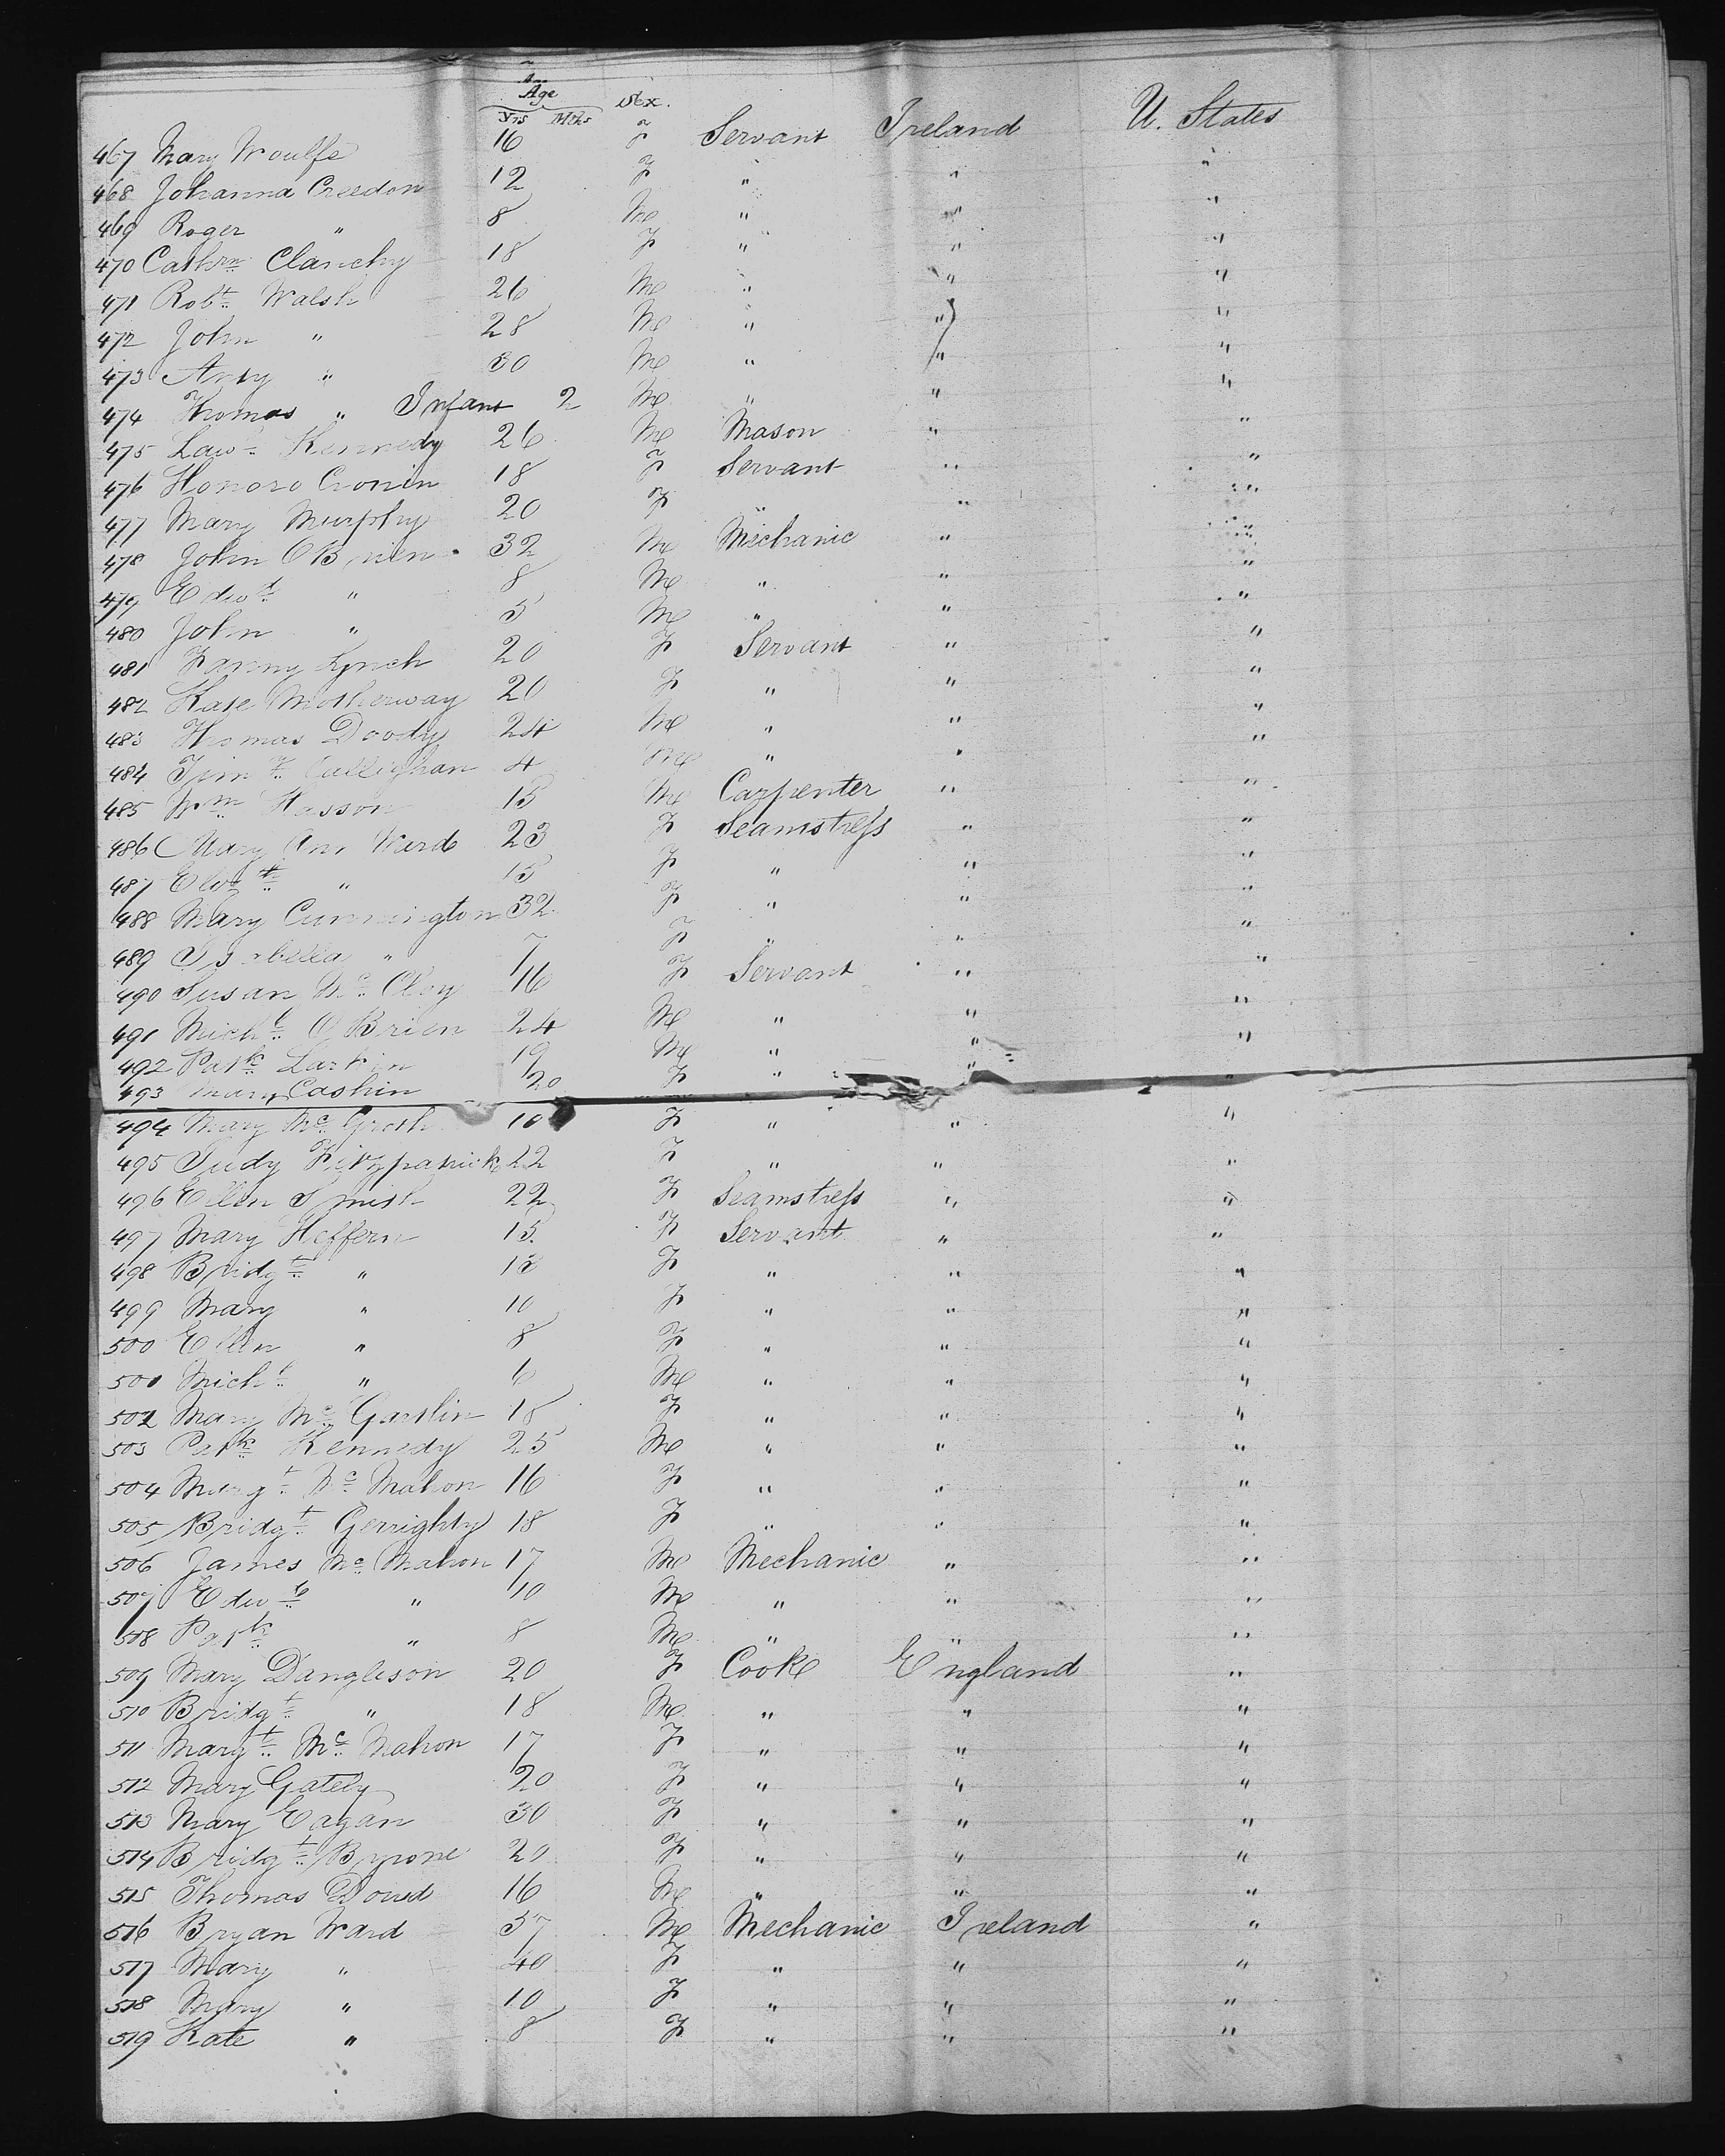 Age Sex.
Yrs Mths
467 Mary Woulfe 16 F Servant Ireland U. States
468 Johanna Creedon 12 F " " "
469 Roger " 8 M " " "
470 Cathrn Clanchy 18 F " " "
471 Robt Walsh 26 M " " "
472 John " 28 M " " "
473 Anty " 30 M " " "
474 Thomas " Infant 2 M " " "
475 Lawe Kennedy 26 M Mason " "
476 Honora Cronin 18 F Servant " "
477 Mary Murphy 20 F " " "
478 John O'Brien 32 M Mechanic " "
479 Edwd " 8 M " " "
480 John " 5 M " " "
481 Fanny Lynch 20 F Servant " "
482 Kate Motherway 20 F " " "
483 Thomas Doody 24 M " " "
484 Tim Callighan 4 M " " "
485 Wm Hasson 15 M Carpenter " "
486 Mary Ann Ward 23 F Seamstress " "
487 Elizth " 15 F " " "
488 Mary Cunnington 32 F " " "
489 Isabella " 7 F " " "
490 Susan Mc Cloy 16 F Servant " "
491 Michl O'Brien 24 M " " "
492 Patk Larkin 19 M " " "
493 Mary Cashin 20 F " " "
494 Mary Mc Grath 10 F " " "
495 Judy Fitzpatrick 22 F " " "
496 Ellen Smith 22 F Seamstress " "
497 Mary Heffern 15 F Servant " "
498 Bridgt " 13 F " " "
499 Mary " 10 F " " "
500 Ellen " 8 F " " "
501 Michl " 6 M " " "
502 Mary Mc Garstlin 18 F " " "
503 Patk Kennedy 25 M " " "
504 Margt Mc Mahon 16 F " " "
505 Bridgt Gerrighty 18 F " " "
506 James Mc Mahon 17 M Mechanic " "
507 Edwd " 10 M " " "
508 Patk " 8 M " " "
509 Mary Dangleson 20 F Cooke England "
510 Bridgt " 18 M " " "
511 Margt Mc Mahon 17 F " " "
512 Mary Gately 20 F " " "
513 Mary Eagan 30 F " " "
514 Bridgt Byrone 20 F " " "
515 Thomas Doud 16 M " " "
516 Bryan Ward 37 M Mechanic Ireland "
517 Mary " 40 F " " "
518 Mary " 10 F " " "
519 Kate " 8 F " " "